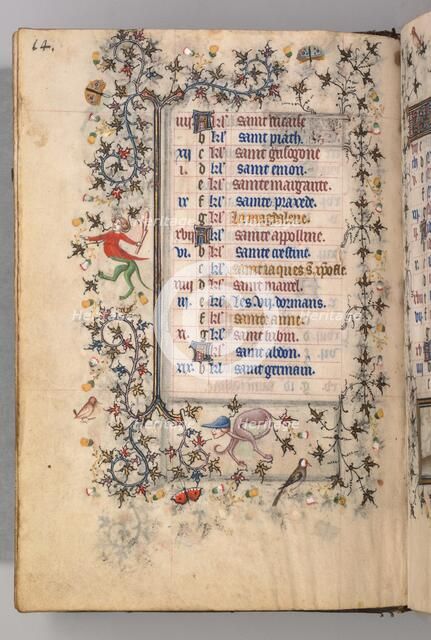 64.
iiij A kl saint
b kl saint piath.
xij c kl saint grisogone
i. d kl saint
e kl sainte margarite.
ix f kl sainte praxede.
g kl La magdalene.
xvij A kl sainte apolline.
vi. b kl sainte crestine.
c kl saint iaques
xiiij d kl saint marcel.
iij e kl Les .vij. dormans.
f kl sainte anne.
xi. g kl saint
A kl saint abdon.
xix. b kl saint germain.
Heritage
Heritage
Heritage
Heritage
Heritage